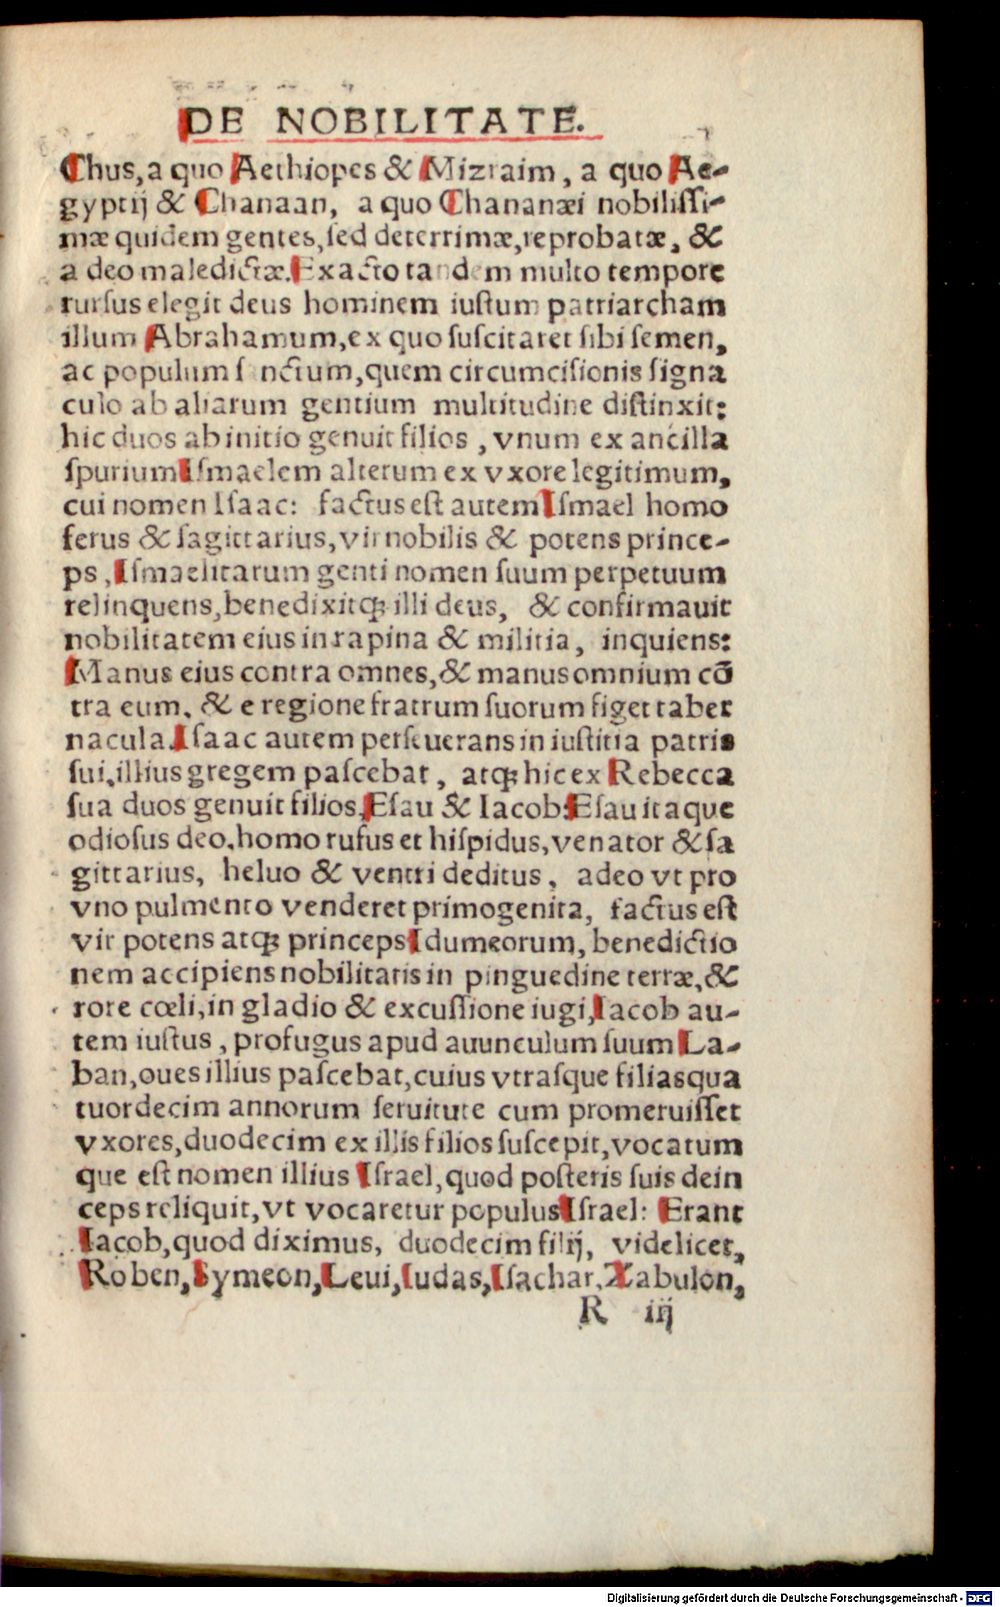 DE NOBILITATE.
Chus, a quo Aethiopes & Mizraim, a quo Ae-
gyptij & Chanaan, a quo Chananæi nobilissi-
mæ quidem gentes, sed deterrimæ, reprobatæ, &
a deo maledictæ. Exacto tandem multo tempore
rursus elegit deus hominem iustum patriarcham
illum Abrahamum, ex quo suscitaret sibi semen,
ac populum sanctum, quem circumcisionis signa
culo ab aliarum gentium multitudine distinxit:
hic duos ab initio genuit filios, vnum ex ancilla
spurium Ismaelem alterum ex vxore legitimum,
cui nomen Isaac: factus est autem Ismael homo
ferus & sagittarius, vir nobilis & potens prince-
ps, Ismaelitarum genti nomen suum perpetuum
relinquens, benedixitqꝫ illi deus, & confirmauit
nobilitatem eius in rapina & militia, inquiens:
Manus eius contra omnes, & manus omnium cō
tra eum. & e regione fratrum suorum figet taber
nacula. Isaac autem perseuerans in iustitia patris
sui, illius gregem pascebat, atqꝫ hic ex Rebecca
sua duos genuit filios, Esau & Iacob: Esau itaque
odiosus deo, homo rufus et hispidus, venator & sa
gittarius, heluo & ventri deditus, adeo vt pro
vno pulmento venderet primogenita, factus est
vir potens atqꝫ princeps Idumeorum, benedictio
nem accipiens nobilitatis in pinguedine terræ, &
rore cœli, in gladio & excussione iugi, Iacob au-
tem iustus, profugus apud auunculum suum La-
ban, oues illius pascebat, cuius vtrasque filias qua
tuordecim annorum seruitute cum promeruisset
vxores, duodecim ex illis filios suscepit, vocatum
que est nomen illius Israel, quod posteris suis dein
ceps reliquit, vt vocaretur populus Israel: Erant
Iacob, quod diximus, duodecim filij, videlicet,
Roben, Symeon, Leui, Iudas, Isachar, Zabulon,
R iij
Digitalisierung gefördert durch die Deutsche Forschungsgemeinschaft - DFG